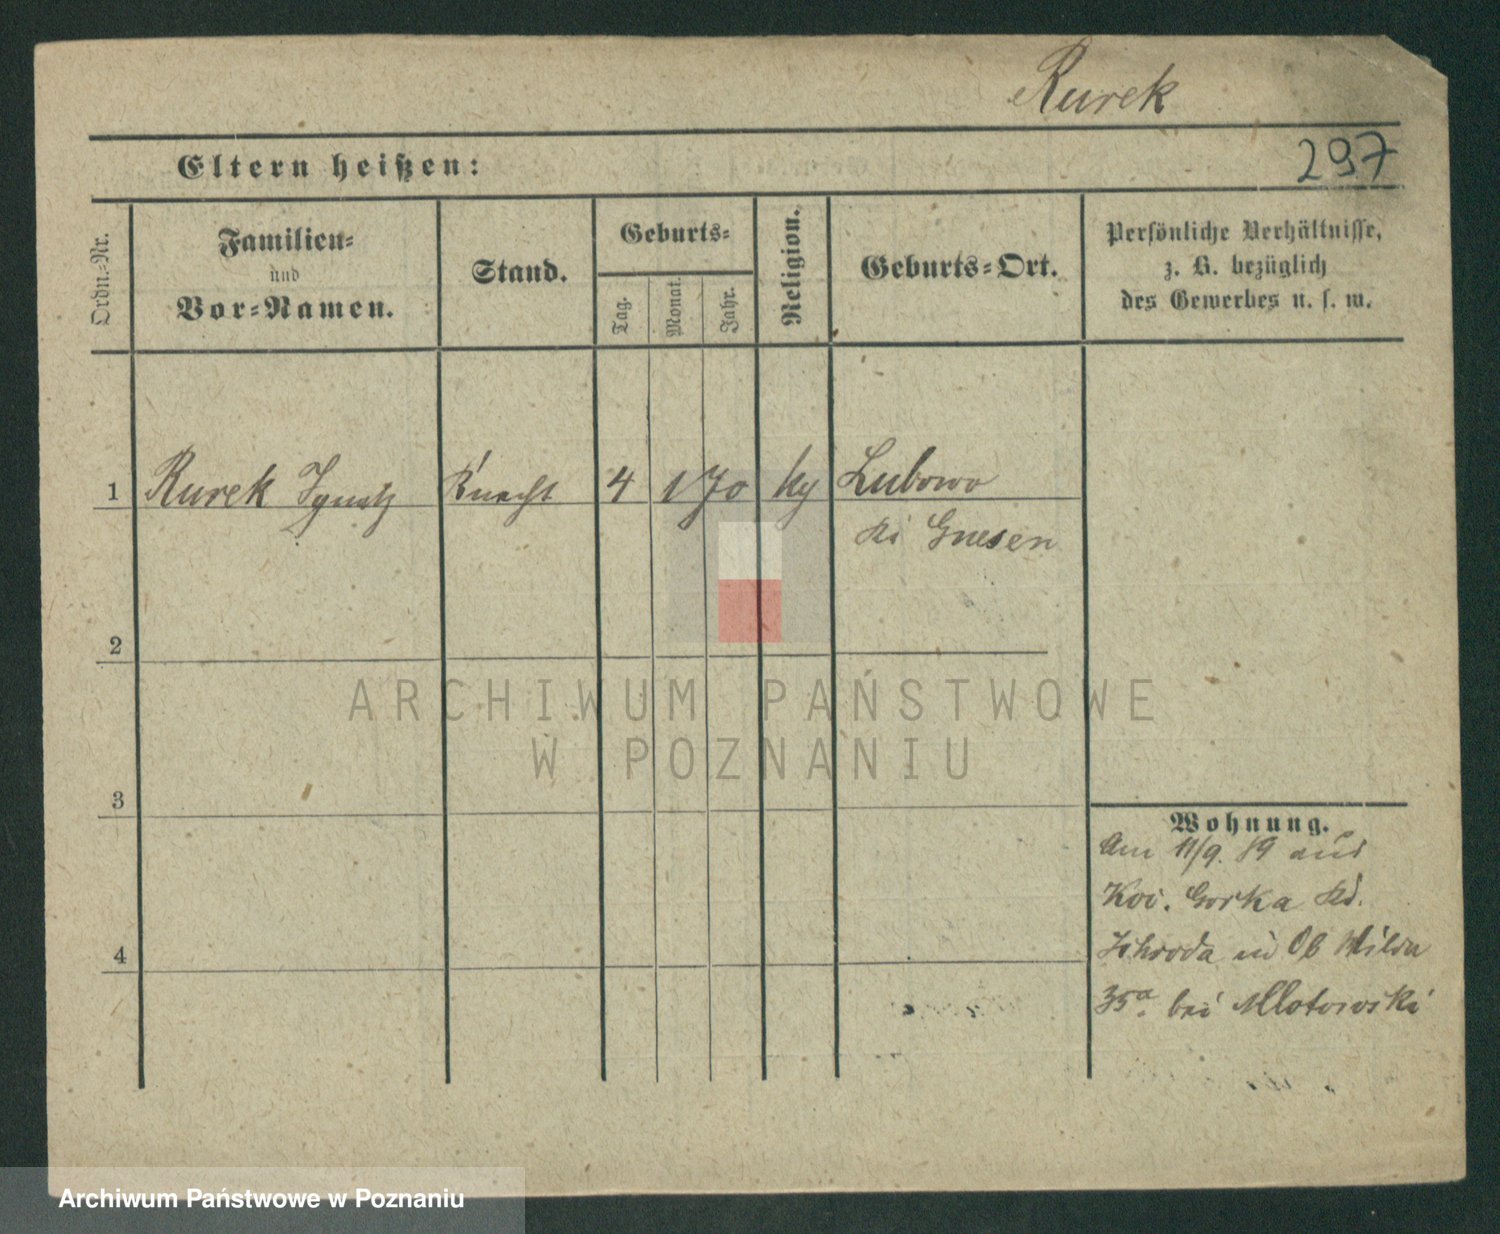 Rurek
297
Eltern heißen:
Ordn.-Nr.
Familien-
und
Vor-Namen.
Stand.
Geburts-
Tag.
Monat.
Jahr.
Religion.
Geburts-Ort.
Persönliche Verhältnisse,
z. B. bezüglich
des Gewerbes u. s. w.
1 Rurek Ignatz Knecht 4 1 70 Lubowo
Gnesen
2
3
4
Wohnung.
Am 11/9. 89 aus
Gorka
Schroda in Ob Wilda
35a. bei Mlotowski
ARCHIWUM PAŃSTWOWE
W POZNANIU
Archiwum Państwowe w Poznaniu